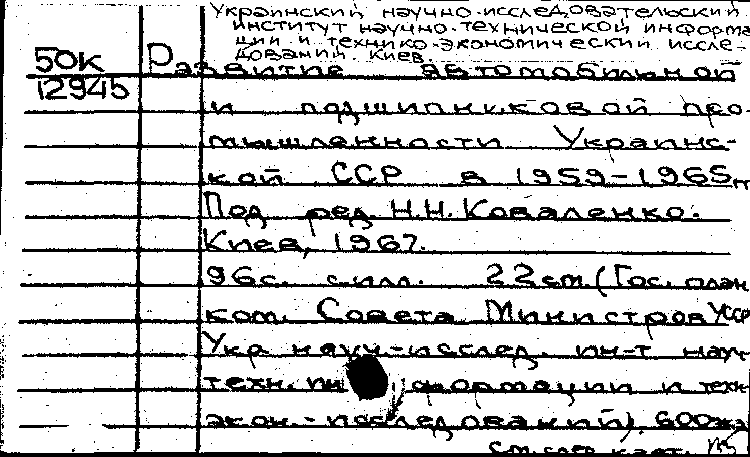 Украинский научно-исследовательский
институт научно-технической информа
ции и технико-экономический иссле-
дований. Киев
50к
12945
Развитие автомобильной
и подшипниковой про
мышленности Украинс-
кой ССР в 1959-1965гг
Под ред. Н.Н. Коваленко.
Киев, 1967.
96с. с илл. 22см (Гос. план
ком. Совета Министров УССР
Укр науч-исслед. ин-т науч
техн. ин формации и техн
экон.-исследований). 600экз
См.след карт.